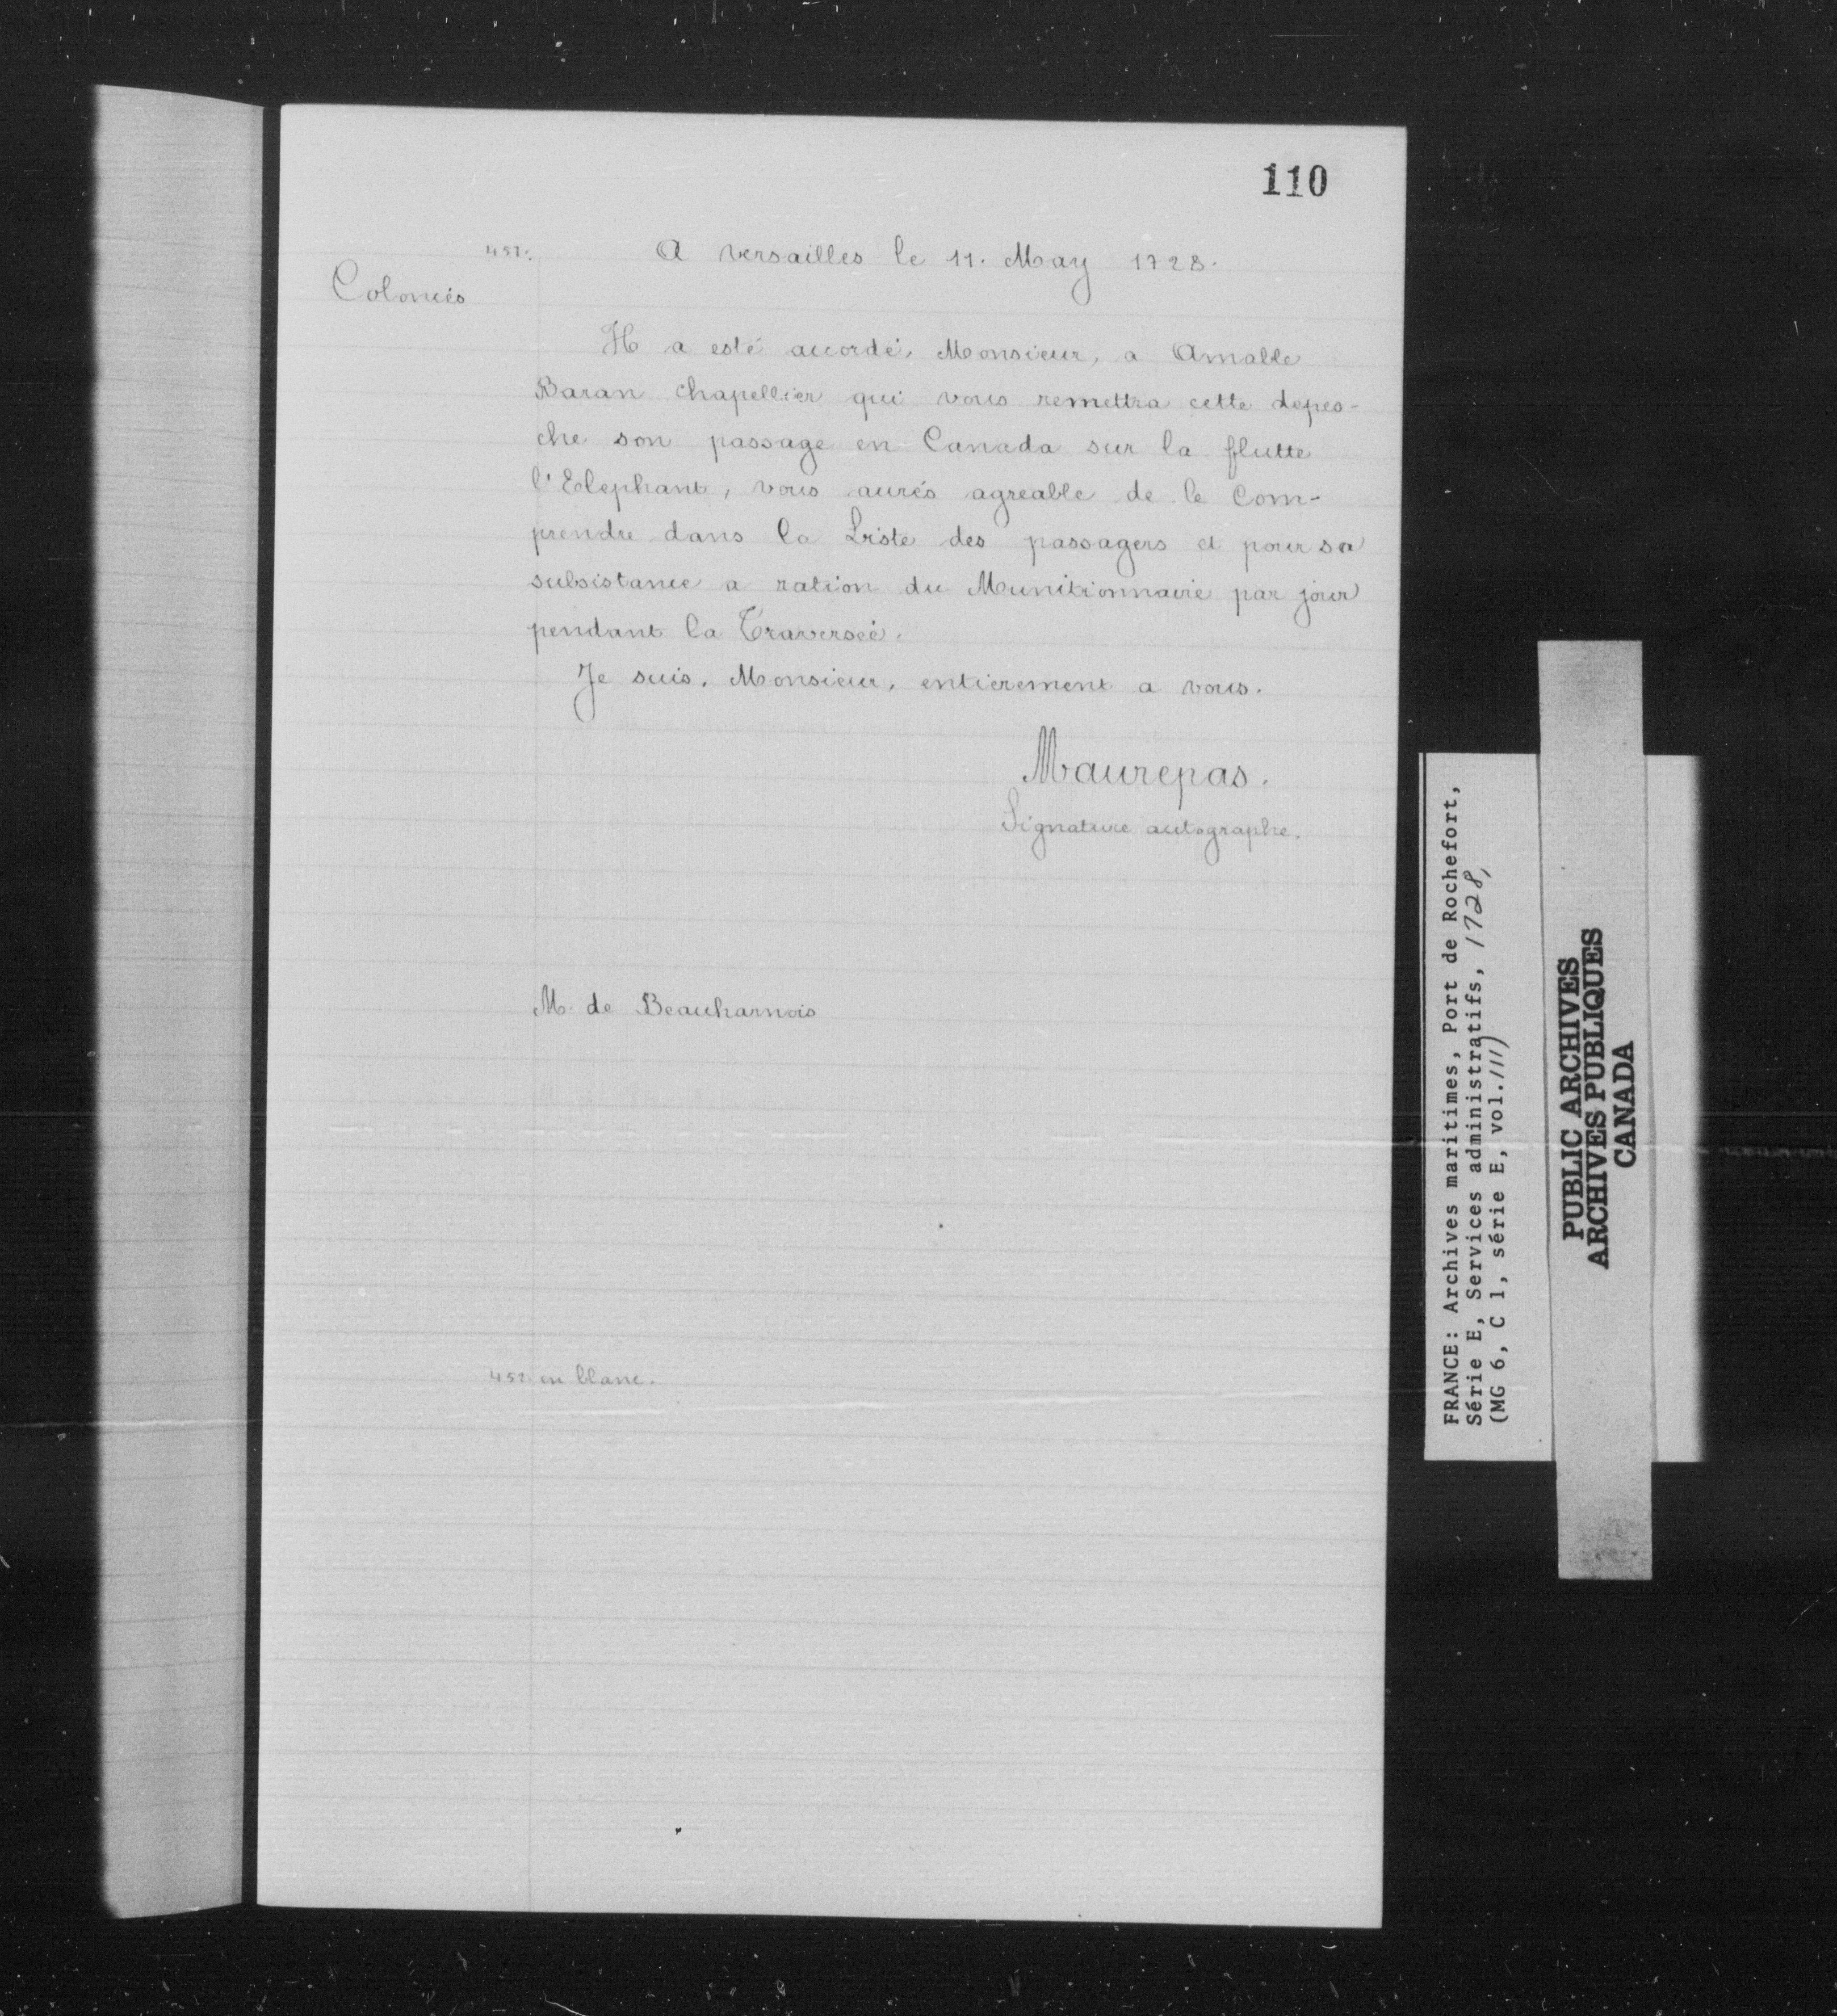 110
451.
A Versailles le 11. May 1728.
Colonies
Il a esté accordé, Monsieur, a Amable
Baran chapellier qui vous remettra cette depes-
che son passage en Canada sur la flutte
l'Elephant, vous aurés agreable de le Com-
prendre dans la Liste des passagers et pour sa
subsistance a ration du Munitionnaire par jour
pendant la Traversée.
Je suis, Monsieur, entierement a vous.
Maurepas.
Signature autographe.
M. de Beauharnois
452 en blanc.
FRANCE: Archives maritimes, Port de Rochefort,
Série E, Services administratifs, 1728,
(MG 6, C 1, série E, vol. 111)
PUBLIC ARCHIVES
ARCHIVES PUBLIQUES
CANADA